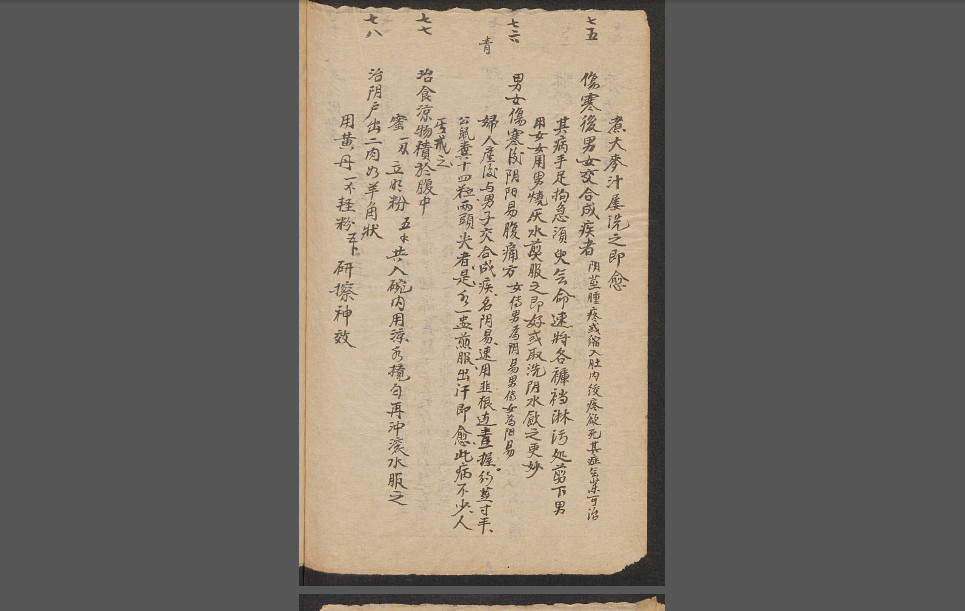 煮大麥汁屢洗之即愈
七五
傷寒後男女交合成疾者 阴莖腫疼或縮入肚内絞疼欲死其症無藥可治
其病手足拘急須臾命速將各褲襠淋污処剪下男
用女女用男燒灰水煎服之即好或取洗阴水飲之更妙
七六
男女傷寒後阴阳易腹痛方 女傳男為阴易男傳女為阳易
青
婦人產後与男子交合成疾名阴易速用韭根握約莖寸半
公鼠糞十四粒两頭尖者是水一盅煎服出汗即愈此病不少人
戒之
七七
治食涼物積於腹中
蜜 立効粉 共入碗内用涼水攪勻再沖滾水服之
七八
治阴户出二肉如羊角狀
用黄丹一不輕粉五卜研擦神效